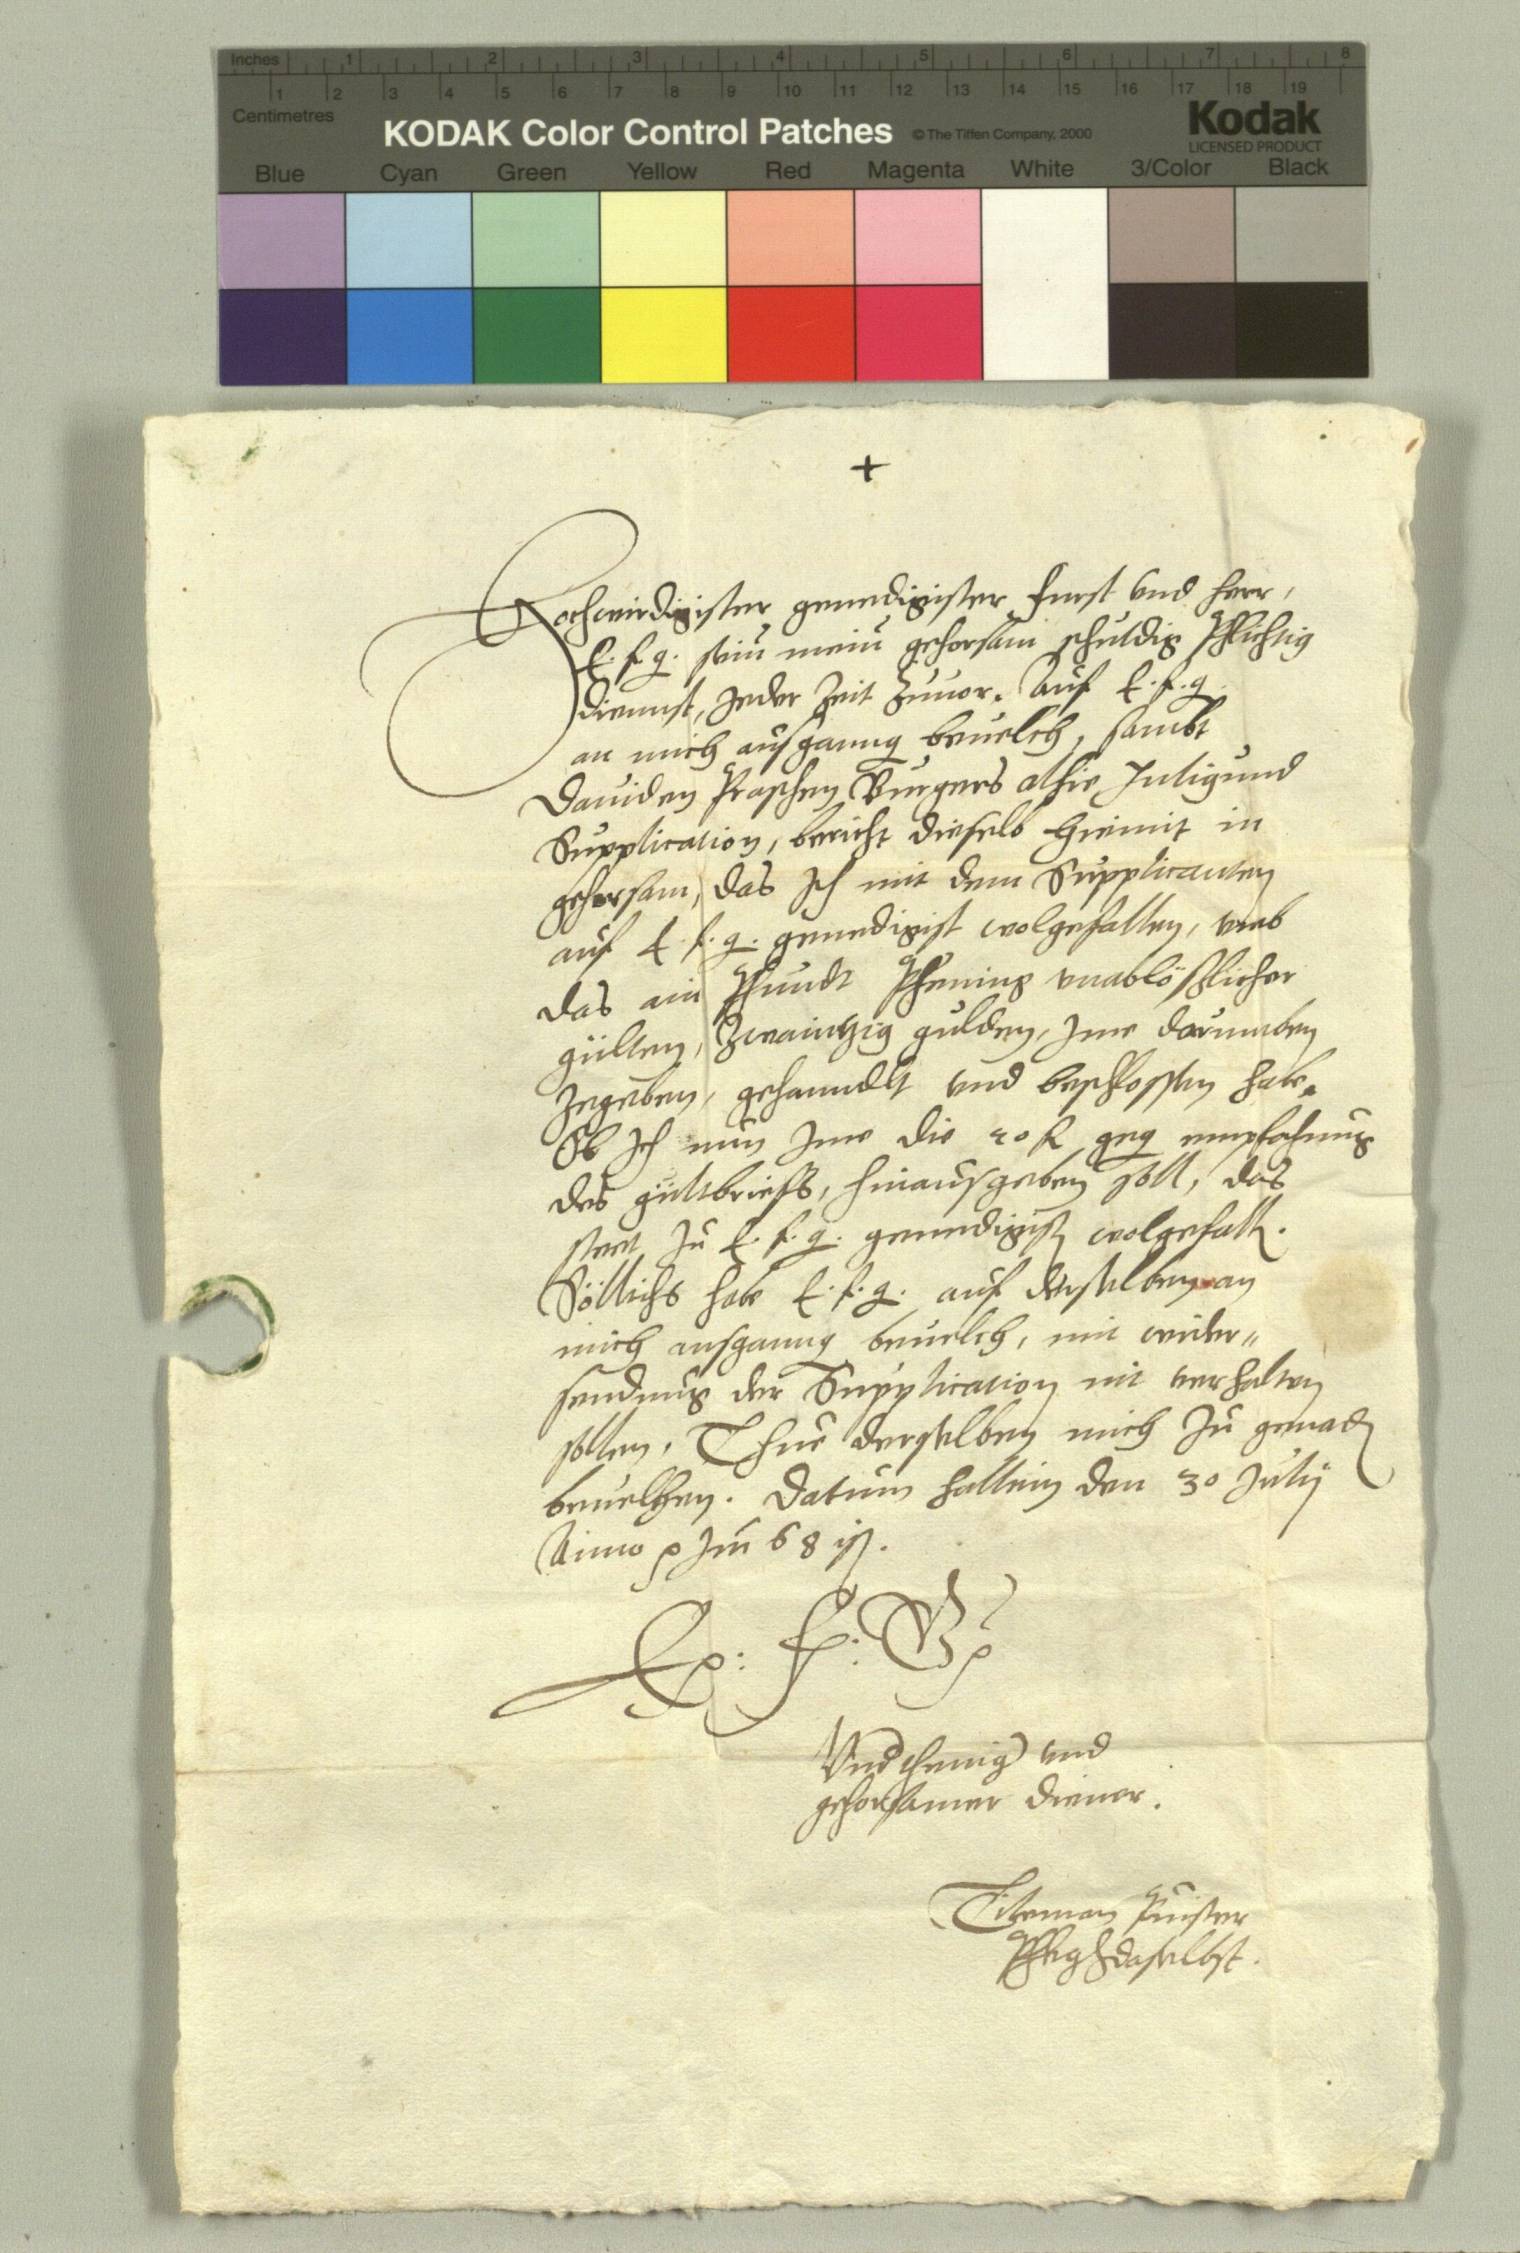 Inches 1 2 3 4 5 6 7 8
1 2 3 4 5 6 7 8 9 10 11 12 13 14 15 16 17 18 19
Centimetres
KODAK Color Control Patches © The Tiffen Company, 2000 Kodak
LICENSED PRODUCT
Blue Cyan Green Yellow Red Magenta White 3/Color Black
+
Hochwirdigister genedigister Furst vnd Herr,
E. f. g. sein mein gehorsam schuldig Pflichtig
diennst, Jeder Zeit Zuuor. Auf E. f. g.
an mich ausganng beuelch, sambt
Dauiden Praschen Burgers alhie Inligund
Supplication, bericht dieselb hiemit in
gehorsam, das Ich mit dem Supplicanten
auf E. f. g. genedigist wolgefallen, vmb
das ain Pfundt Pfening vnablößlicher
gülten, Zwaintzig gulden, Ime darumben
Zegeben, gehanndlt vnd beschlossen habe.
Ob Ich nun Ime die 20 f geg empfahung
des gültbriefs, hinausgeben soll, das
steet Zu E. f. g. genedigist wolgefall.
Söllichs habe E. f. g. auf derselben an
mich ausganng beuelch, mit wider-
sendung der Supplication nit verhalten
sollen, Thue derselben mich Zu genad
beuelhen. Datum Hallein den 30 Julij
Anno p Im 68 ist.
E: F: G
Vndthenig vnd
gehorsamer diener.
Titeman
Pfleg daselbst.